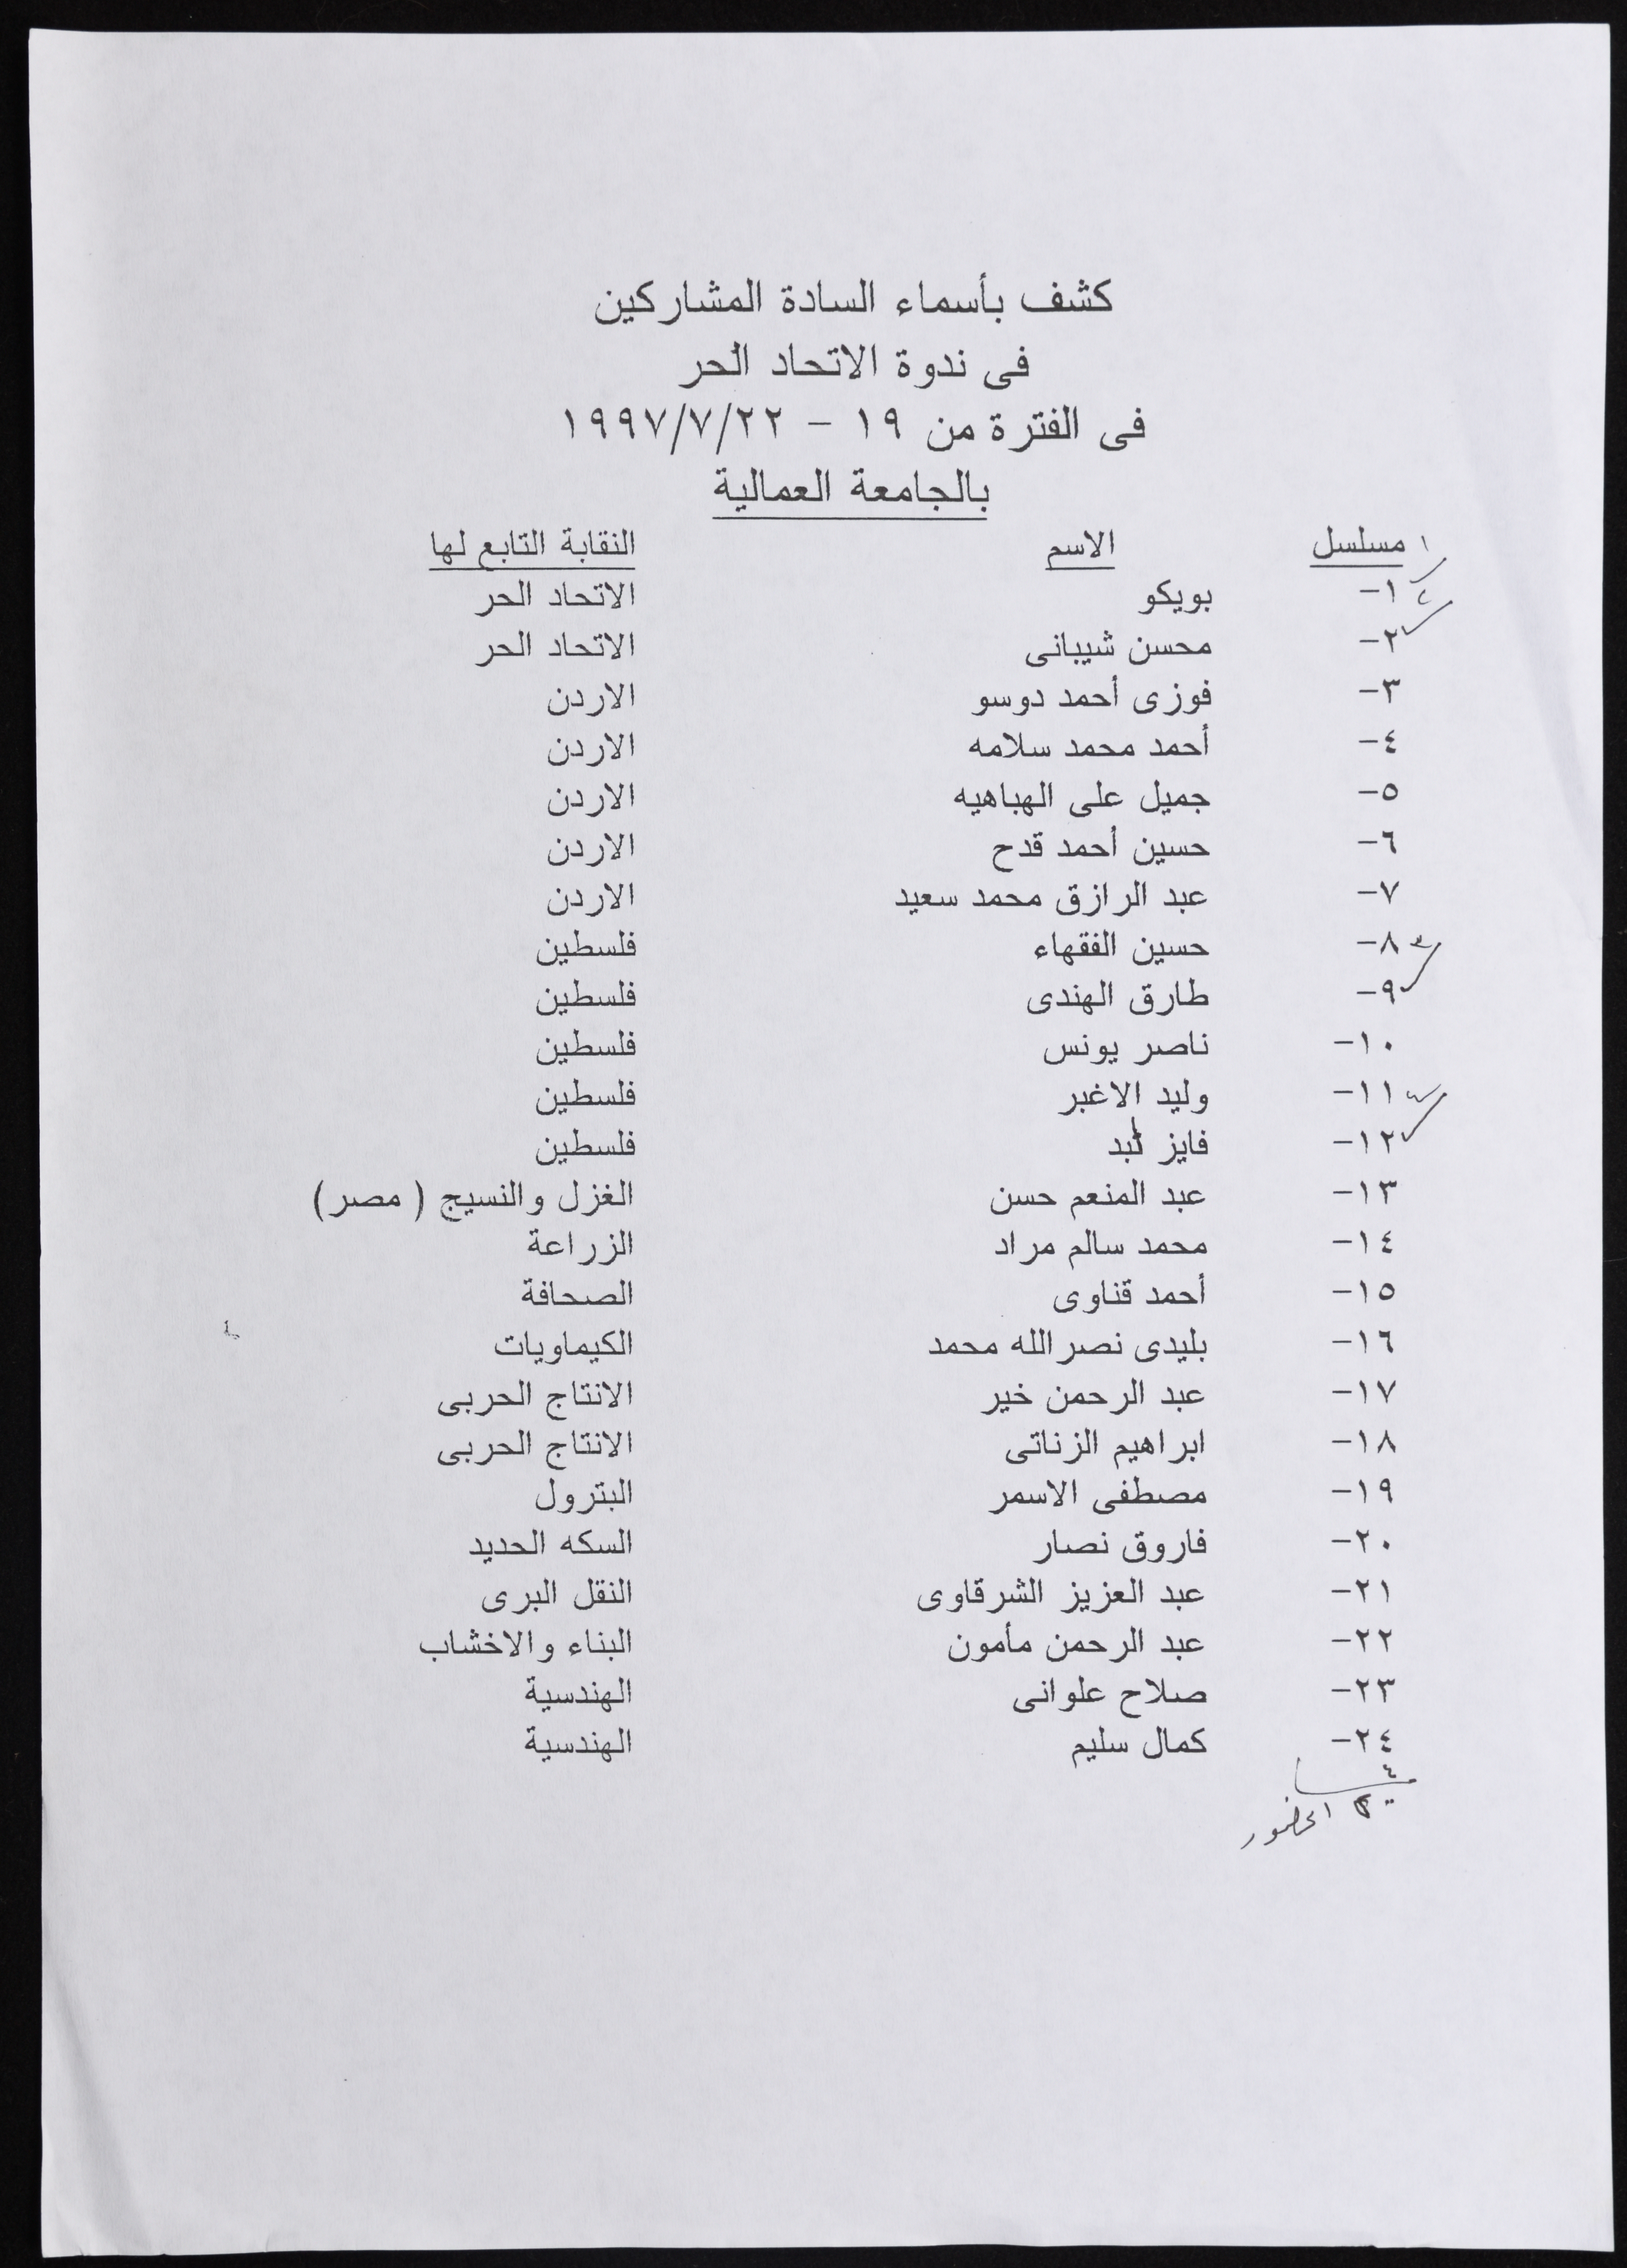 كشف بأسماء السادة المشاركين
فى ندوة الاتحاد الحر
فى الفترة من ١٩ - ١٩٩٧/٧/٢٢
بالجامعة العمالية
مسلسل الاسم النقابة التابع لها
١- بويكو الاتحاد الحر
٢- محسن شيبانى الاتحاد الحر
٣- فوزى أحمد دوسو الاردن
٤- أحمد محمد سلامه الاردن
٥- جميل على الهباهيه الاردن
٦- حسين أحمد قدح الاردن
٧- عبد الرازق محمد سعيد الاردن
٨- حسين الفقهاء فلسطين
٩- طارق الهندى فلسطين
١٠- ناصر يونس فلسطين
١١- وليد الاغبر فلسطين
١٢- فايز لبد فلسطين
١٣- عبد المنعم حسن الغزل والنسيج ( مصر )
١٤- محمد سالم مراد الزراعة
١٥- أحمد قناوى الصحافة
١٦- بليدى نصر الله محمد الكيماويات
١٧- عبد الرحمن خير الانتاج الحربى
١٨- ابراهيم الزناتى الانتاج الحربى
١٩- مصطفى الاسمر البترول
٢٠- فاروق نصار السكه الحديد
٢١- عبد العزيز الشرقاوى النقل البرى
٢٢- عبد الرحمن مأمون البناء والاخشاب
٢٣- صلاح علوانى الهندسية
٢٤- كمال سليم الهندسية
٤
الحضور